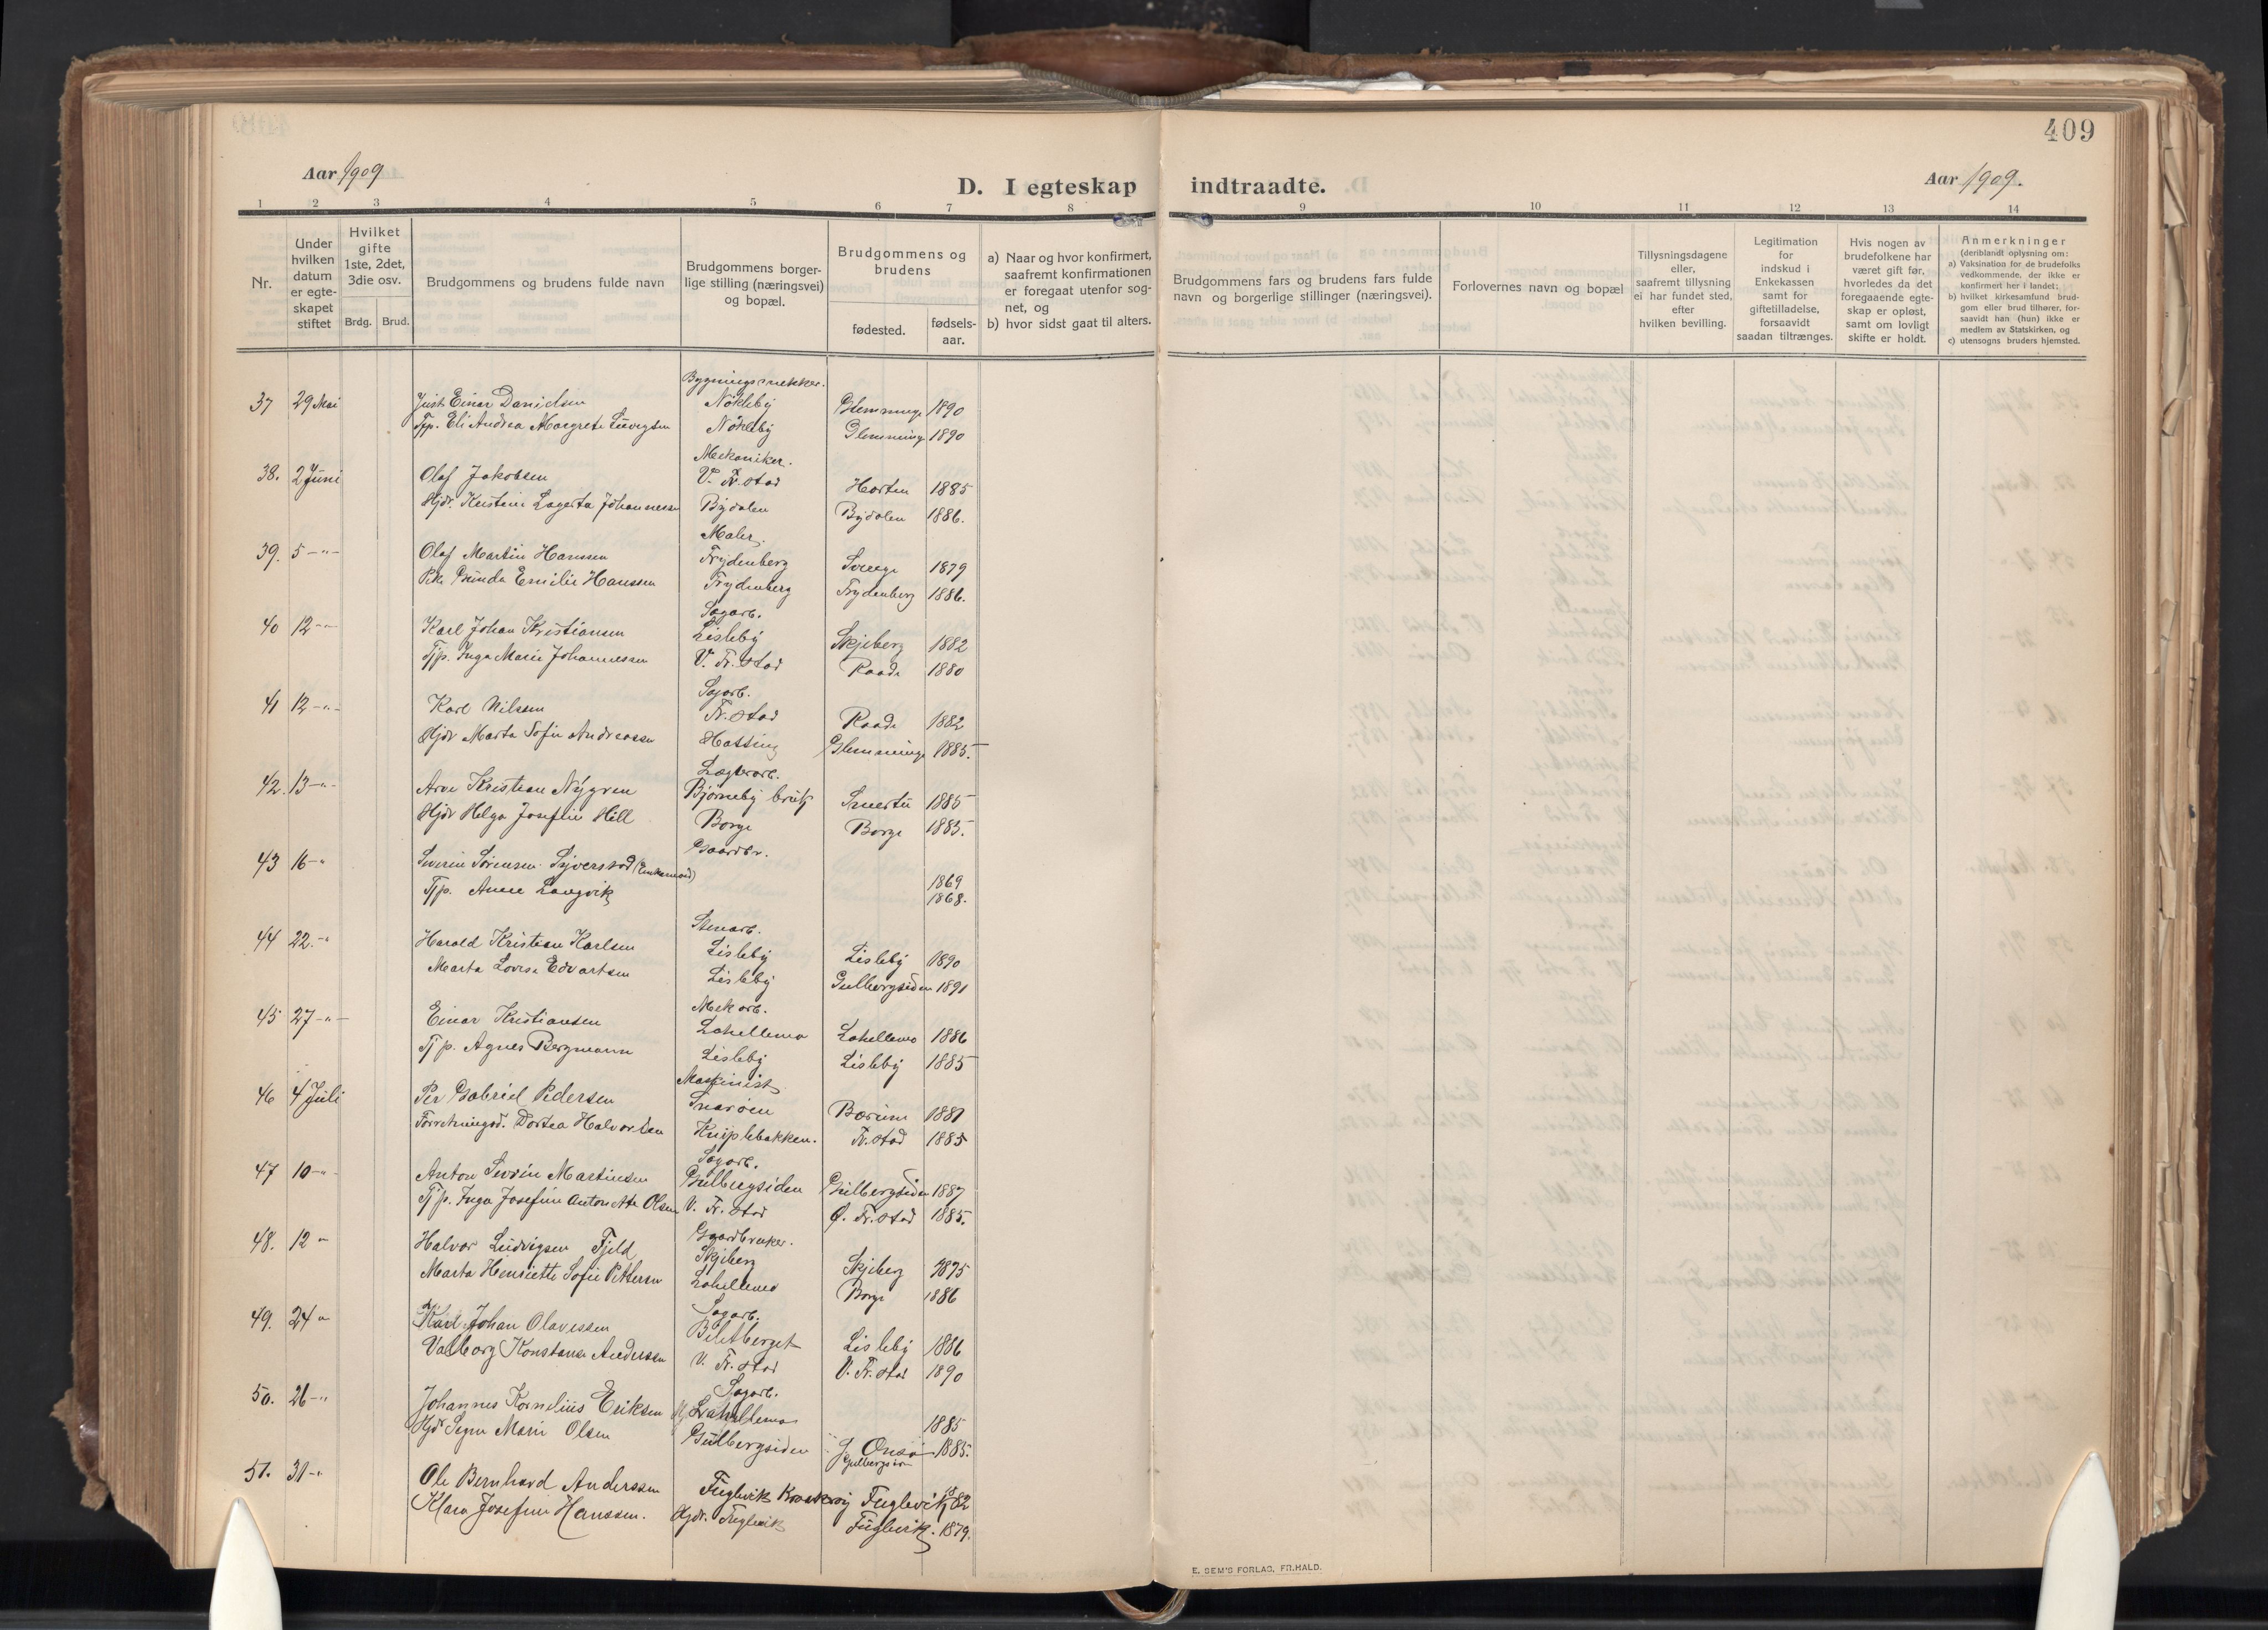 409
Aar 1909
D. I egteskap indtraadte.
Aar 1909.
1 2 3 4 5 6 7 8 9 10 11 12 13 14
Nr.
Under hvilken datum er egteskapet stiftet
Hvilket gifte 1ste, 2det, 3die osv.
Brdg. Brud.
Brudgommens og brudens fulde navn
Brudgommens borgerlige stilling (næringsvei) og bopæl.
Brudgommens og brudens
fødested. fødselsaar.
a) Naar og hvor konfirmert, saafremt konfirmationen er foregaat utenfor sognet, og
b) hvor sidst gaat til alters.
Brudgommens fars og brudens fars fulde navn og borgerlige stillinger (næringsvei).
Forlovernes navn og bopæl
Tillysningsdagene eller, saafremt tillysning ei har fundet sted, efter hvilken bevilling.
Legitimation for indskud i Enkekassen samt for giftetilladelse, forsaavidt saadan tiltrænges.
Hvis nogen av brudefolkene har været gift før, hvorledes da det foregaaende egteskap er opløst, samt om lovligt skifte er holdt.
Anmerkninger (deriblandt oplysning om:
a) Vaksination for de brudefolks vedkommende, der ikke er konfirmert her i landet;
b) hvilket kirkesamfund brudgom eller brud tilhører, forsaavidt han (hun) ikke er medlem av Statskirken, og
c) utensogns bruders hjemsted.
Bygningssnekker.
37 29 Mai Just Einar Danielsen Nökleby Glemminge 1890
Tjp. Eli Andrea Margrete Nökleby Glemminge 1890
Mekaniker.
38. 2 Juni Olaf Jakobsen V. Fr.stad Horten 1885
Hjdr. Kristine Lagerta Johannessen Bydalen Bydalen 1886.
Maler.
39. 5 -"- Olaf Martin Hanssen Frydenberg 1879
Emilie Hanssen Frydenberg Frydenberg 1886.
Sagarb.
40 12 -"- Karl Johan Kristiansen Lisleby Skjeberg 1882
Tjp. Inga Marie Johannessen V. Fr.stad Raade 1880
Sagarb.
41 12 -"- Karl Nilssen Fr.stad Raade 1882
Hjdr Marta Sofie Andreassen Hassing Glemminge 1885.
Lagterarb.
42. 13 -"- Arve Kristian Nygren Bjørneby bruk 1885
Hjdr Helga Josefine Hill Borge Borge 1885.
Gaardbr.
43 16 -" Severin Sørensen (Enkemand) 1869
Tjp. Anne Langvik 1868.
Stenarb.
44 22. -" Harald Kristian Karlsen Lisleby Lisleby 1890
Marta Lovise Edvartsen Lisleby Gulbergsiden 1891
Mek arb.
45 27 -"- Einar Kristiansen Lahellemo Lahellemo 1886
Tjp. Agnes Bergmann Lisleby Lisleby 1885
Maskinist
46 4 Juli Per Gabriel Pedersen Snarøen Bærum 1881
Forretningsd. Dortea Halvorsen Kniplebakken. Fr.stad 1885
Sagarb.
47 10 -"- Anton Severin Martinsen Gulbergsiden Gulbergsiden 1887
Tjp. Inga Josefine Antonette Olsen V. Fr.stad Ø. Fr.stad 1885.
Gaardbruker.
48. 12 " Halvor Ludvigsen Fjeld Skjeberg Skjeberg 1875
Marta Henriette Sofie Pettersen Lahellemo Borge 1886
Sagarb.
49. 24 " Karl Johan Olavessen Lisleby 1886
Valborg Konstanse Anderssen V. Fr.stad V. Fr.stad 1890
Sagarb.
50. 26 -" Johannes Kornelius Eriksen Lahellemo 1885
Hjdr. Marie Olsen Gulbergsiden Onsø 1885.
Gulbergsiden
51. 31 -" Ole Bernhard Anderssen Fuglevik Kraakerøy Fuglevik 82
Klara Josefine Hanssen. Hjdr. Fuglevik Fuglevik. 1879.
E. SEM'S FORLAG, FR.HALD.